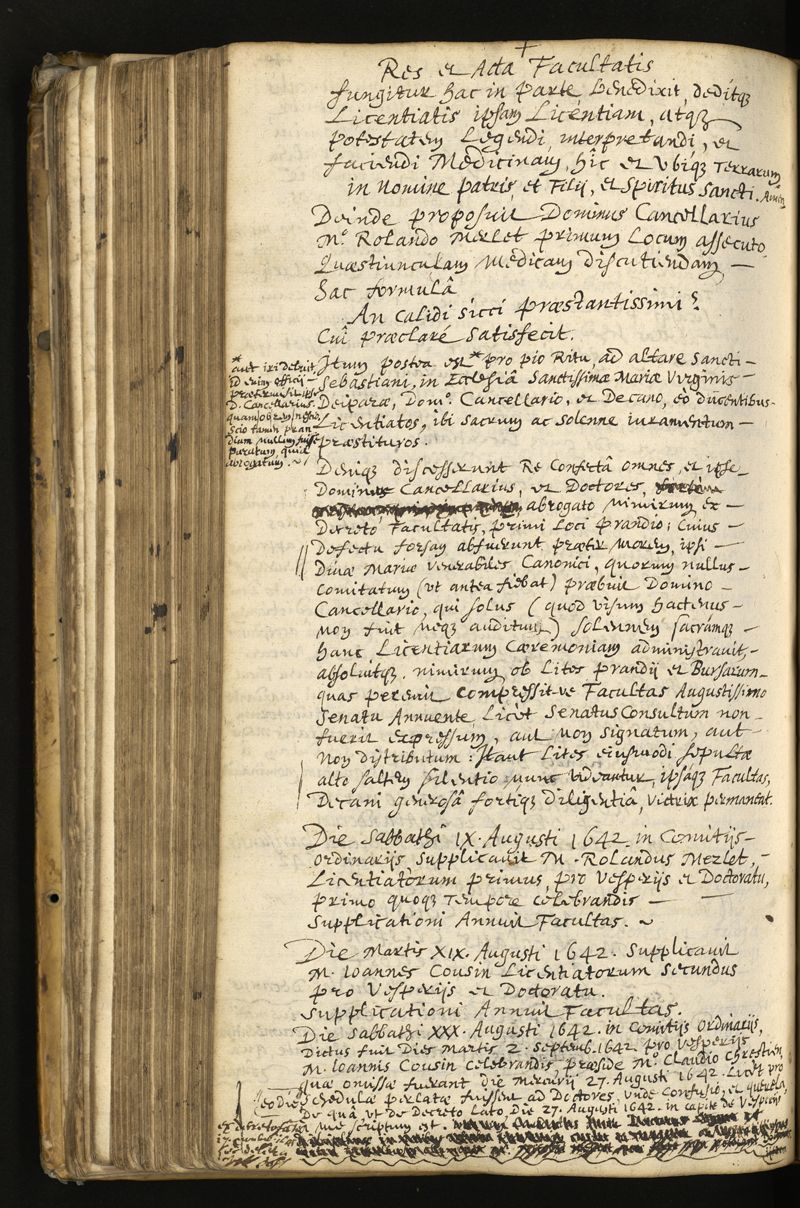 +
Res et Acta Facultatis
fungitur hac in parte Benedixit, deditq;
Licentiatis ipsam Licentiam, atq;
potestatem Legendi, interpretandi, et
faciendi Medicinam, hîc et Vbiq; Terrarum
in nomine patris, et Filij, et Spiritus Sancti. Amen.
Deinde proposuit Dominus Cancellarius
M.º Rolando Merlet primum Locum assecuto
Quæstiunculam Medicam discutiendam –
hac formulâ
An Calidi sicci præstantissimi?
Cui præclaré Satisfecit.
Itum postea est * pro pio Ritu, ad altare Sancti –
Sebastiani, in Ecclesiâ Sanctissimæ Mariæ Virginis –
Deiparæ, Dom.º Cancellario, et Decano, eo ducentibus –
Licentiatos, ibi Sacrum ac Solenne iuramentum –
præstituros.
* aut iri debuit
id enim officij –
prætermisit ipse
D. Cancellarius.
quamobrem, nescio
tamen pran
dium nullum fuisse
paratum, quia
abrogatum. ~
Deniq; discesserunt Re Confectâ omnes, et ipse
Dominus Cancellarius, et Doctores,
abrogato nimirum ex –
Decreto Facultatis, primi Loci prandio; Cuius –
Defectu forsan abfuerunt præter morem, ipsi –
Divæ Mariæ Venerabiles Canonici, quorum nullus –
Comitatum (ut antea fiebat) præbuit Domino –
Cancellario, qui solus (quod visum hactenus –
non fuit neq; auditum) Solennem sacrámq; –
hanc Licentiarum Cæremoniam administravit, –
absolvitq;. nimirum ob Lites prandij et Bursarum –
quas peremit Compressit-ve Facultas Augustissimo
Senatu Annuente, Licèt SenatusConsultum non –
fuerit expressum, aut non signatum, aut –
non distributum: Haut Lites eiusmodi sepultæ
alto saltem silentio nunc videantur, ipsáq; Facultas,
Decani generosâ fortíq; diligentiâ, victrix permanent.
Die Sabbathi IX. Augusti 1642. in Comitijs –
ordinarijs supplicavit M. Rolandus Merlet, –
Licentiatorum primus, pro Vesperijs et Doctoratu,
primo quoq; tempore celebrandis –
Supplicationi Annuit Facultas. ~
Die Martis XIX. Augusti 1642. Supplicavit
M. Ioannes Cousin Licentiatorum Secundus
pro Vesperijs et Doctoratu.
Supplicationi Annuit Facultas.
Die Sabbathi XXX. Augusti 1642. in Comitijs Ordinarijs,
Dictus fuit Dies Martis 2. Septemb. 1642. pro Vesperijs
M. Ioannis Cousin celebrandis, præside M.º Claudio Chrestien,
quæ omissæ fuerant die Mercurij 27. Augusti 1642. Licèt pro
eo die Schedulæ perlatæ fuissent ad Doctores, unde Confusio, et querela,
De quâ, vt de Decreto Lato, Die 27. Augusti 1642. in capite de Vesperijs
scriptum est.